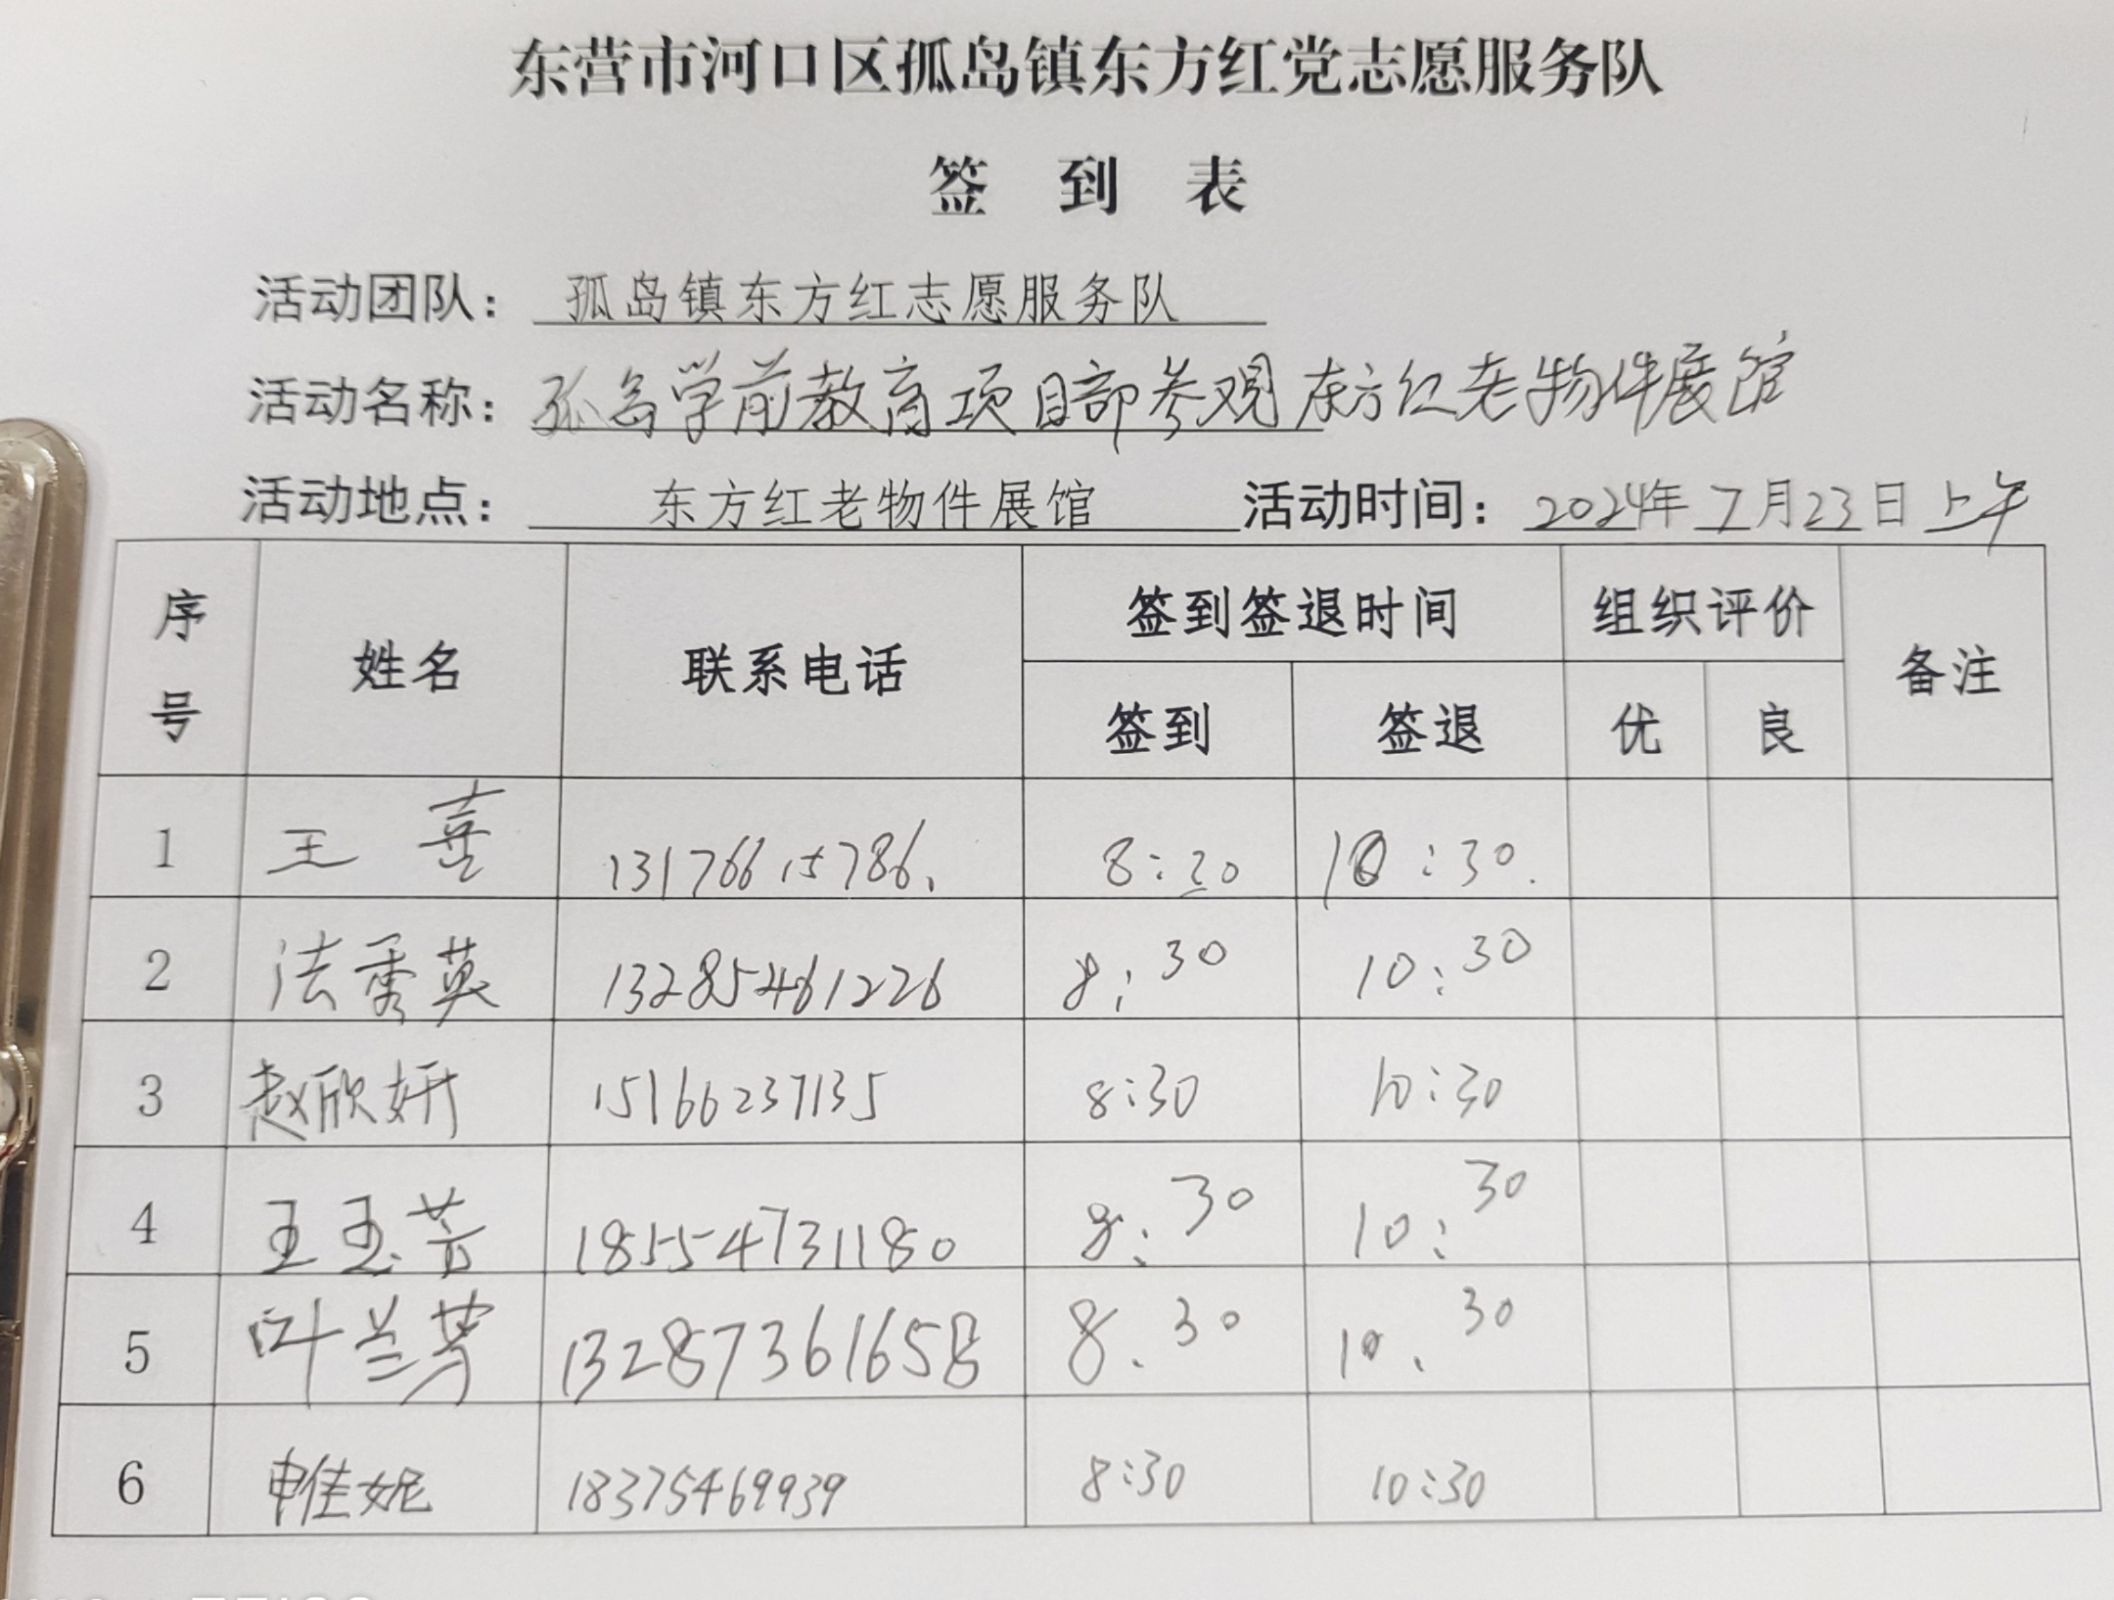 东营市河口区孤岛镇东方红党志愿服务队
签 到 表
活动团队： 孤岛镇东方红志愿服务队
活动名称： 孤岛学前教育项目部参观东方红老物件展馆
活动地点： 东方红老物件展馆 活动时间： 2024年 7月23日上午
序号 姓名 联系电话 签到签退时间 组织评价 备注
签到 签退 优 良
1 王喜 13176615786. 8:20 10:30.
2 法秀英 13285461226 8:30 10:30
3 赵欣妍 15166237135 8:30 10:30
4 王玉芳 18554731180 8:30 10:30
5 叶兰芳 13287361658 8.30 10.30
6 申佳妮 18375469939 8:30 10:30